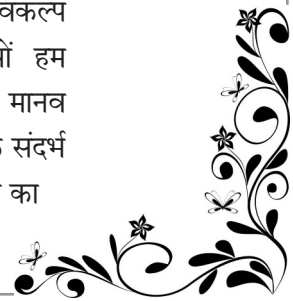 वकल्प
हम
मानव
संदर्भ
का